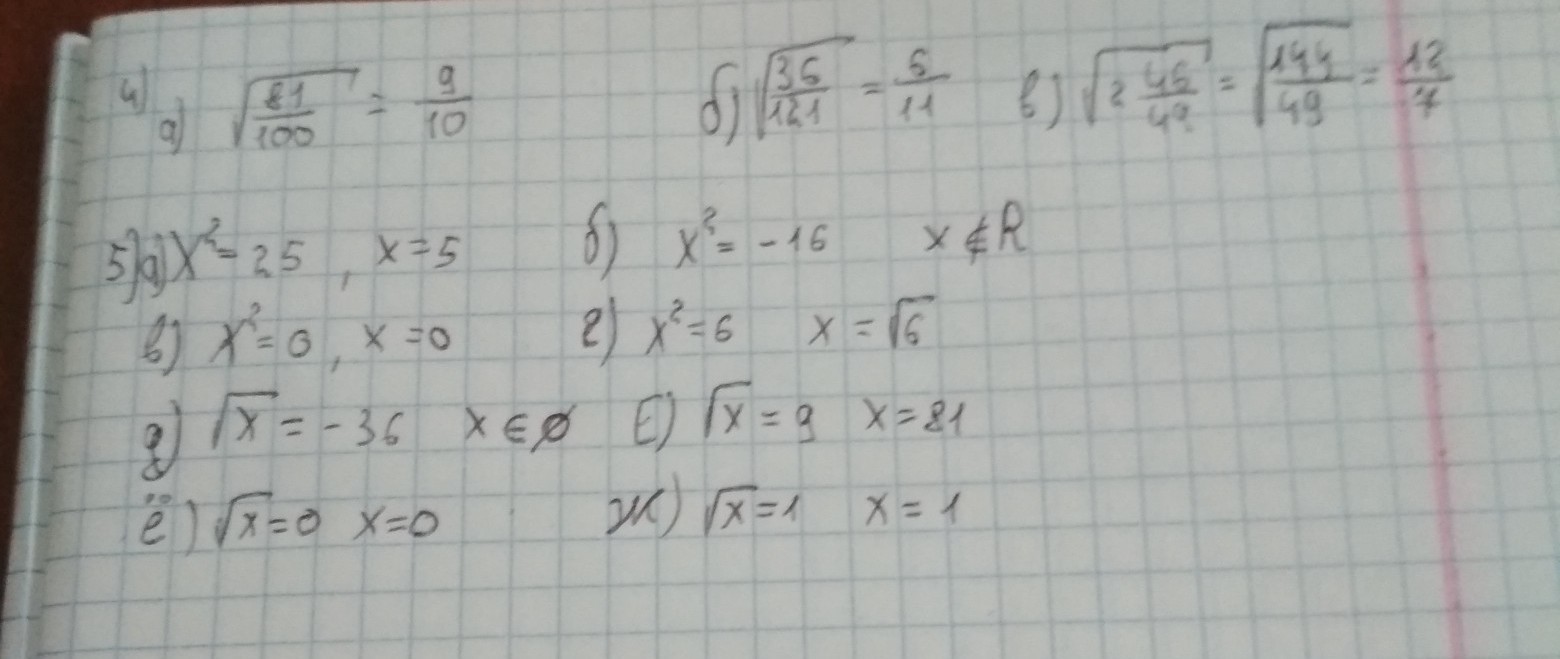 4) а) √(81/100) = 9/10 б) √(36/121) = 6/11 в) √(2 46/49) = √(144/49) = 12/7
5) а) x² = 25, x = 5 б) x² = -16 x ∉ R
в) x² = 0, x = 0 г) x² = 6 x = √6
д) √x = -36 x ∈ ∅ Е) √x = 9 x = 81
ё) √x = 0 x = 0 Ж) √x = 1 x = 1